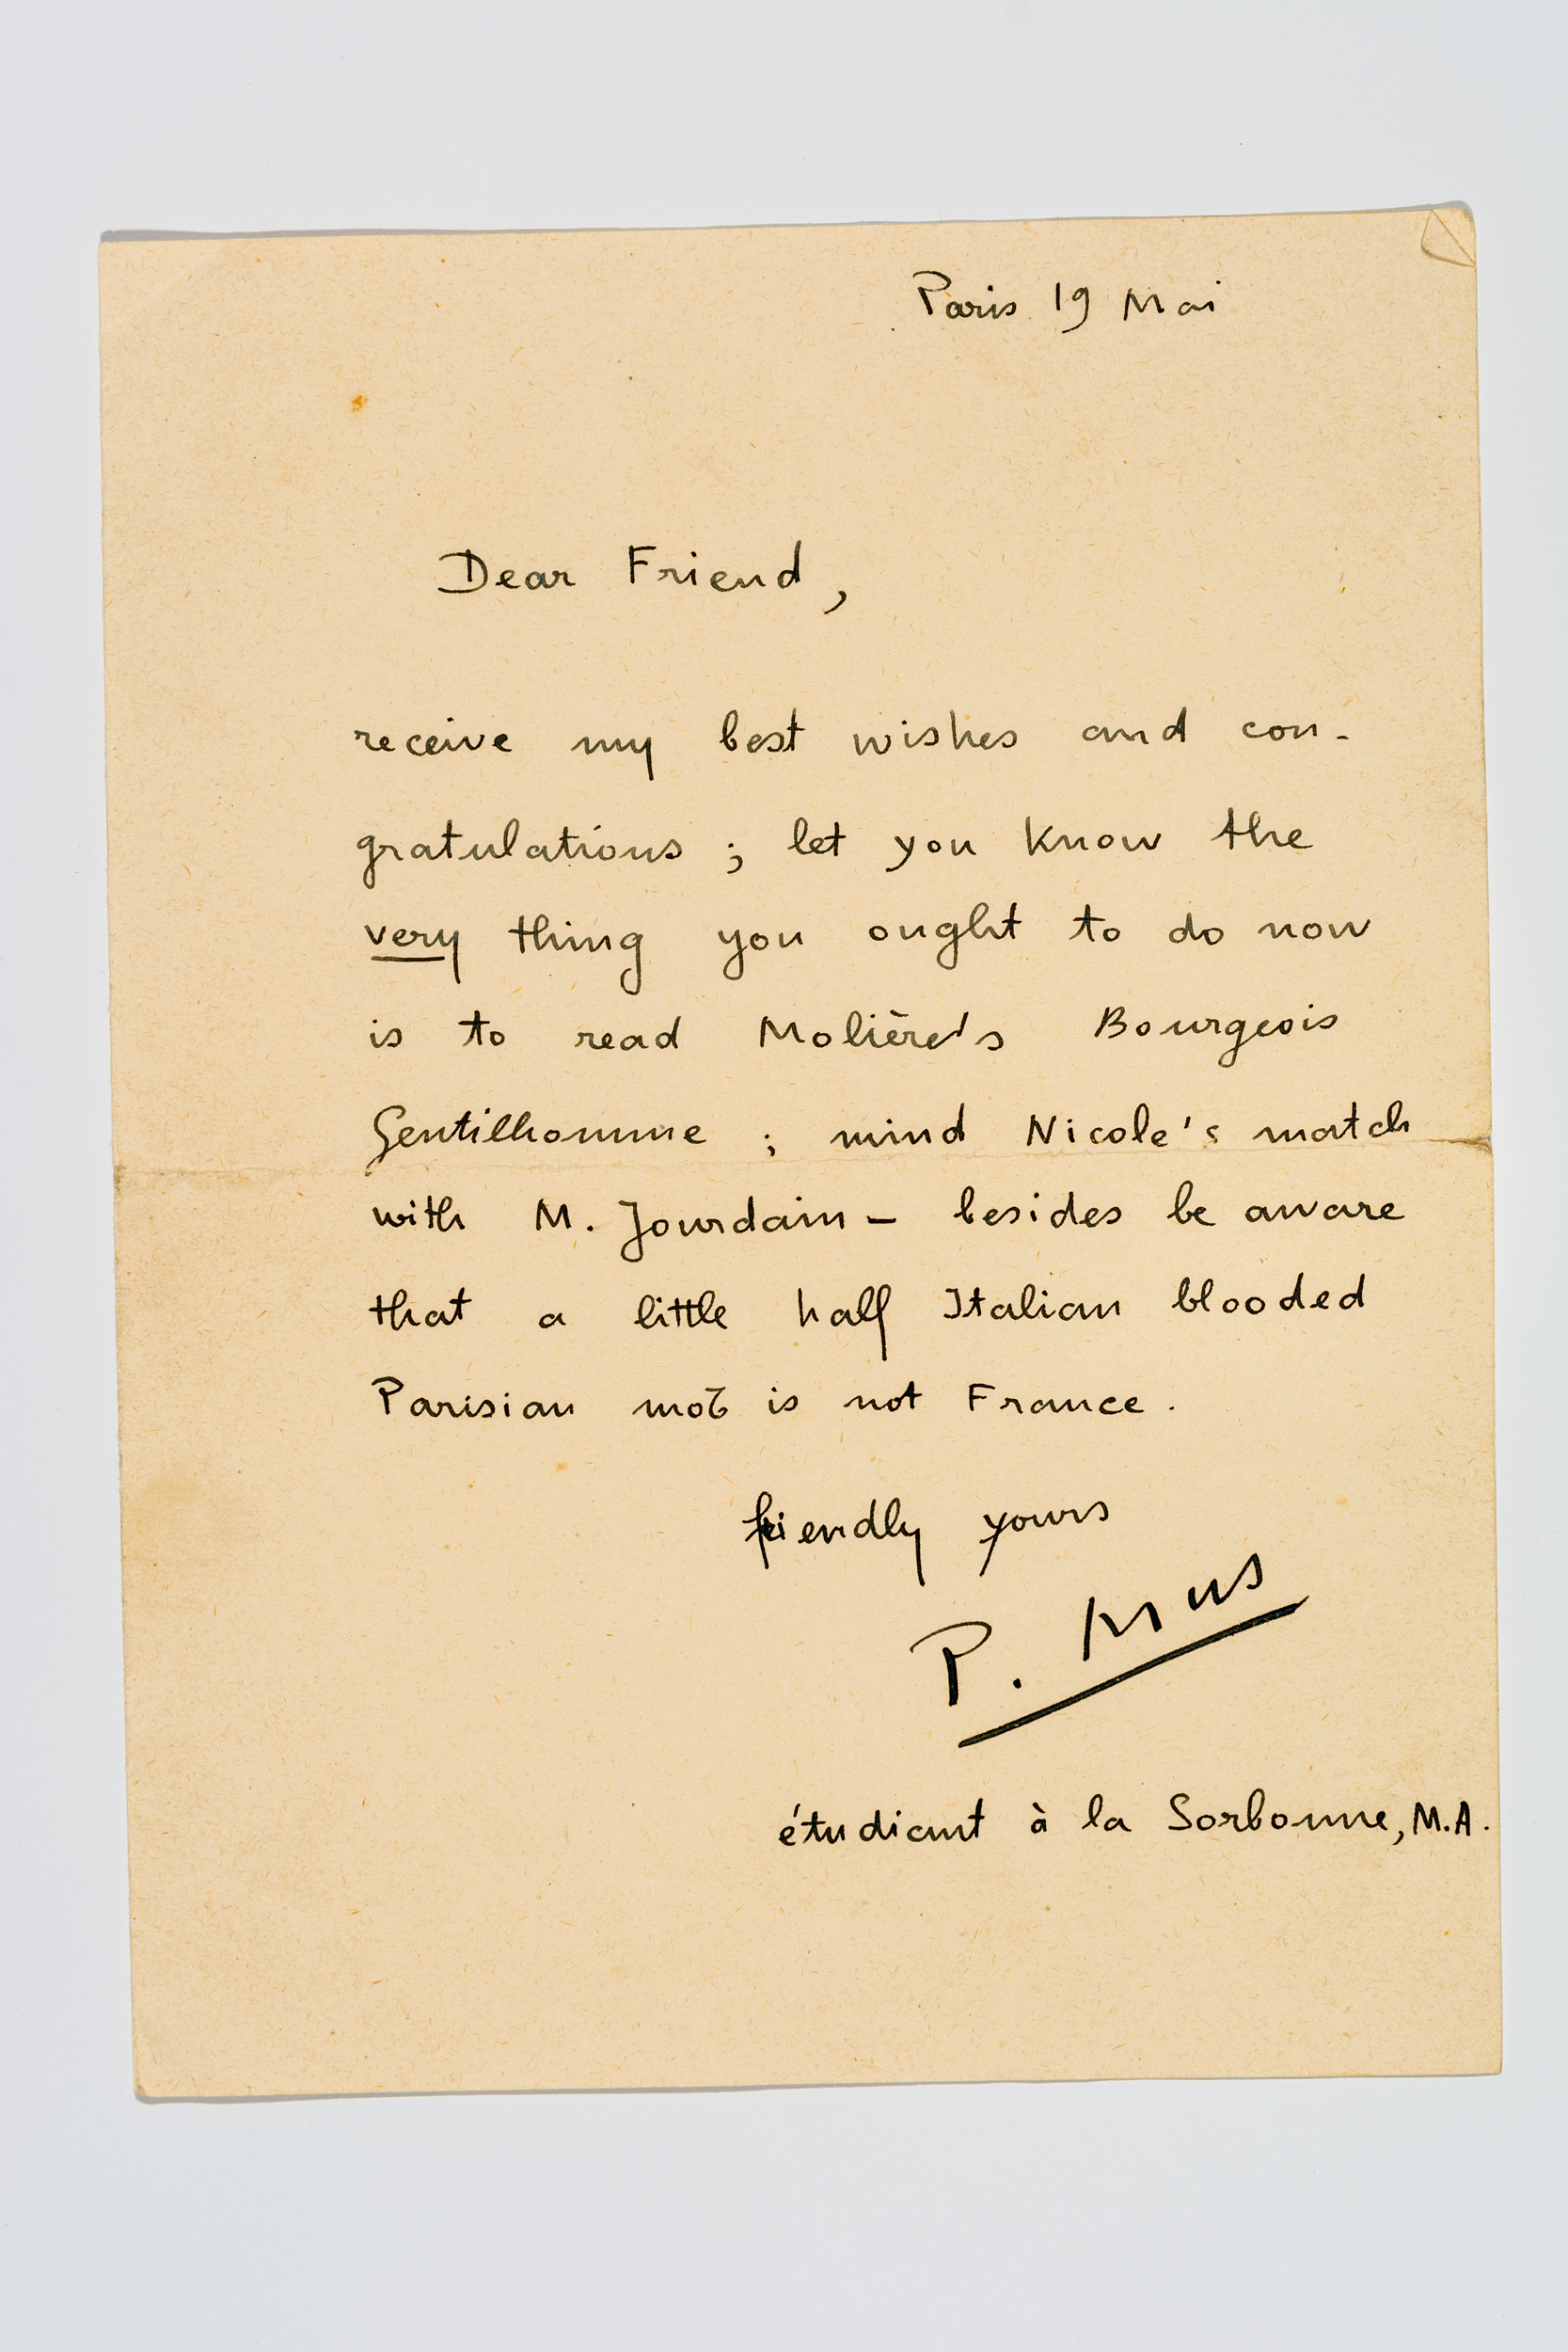 Paris 19 Mai
Dear Friend,
receive my best wishes and con-
gratulations ; let you know the
very thing you ought to do now
is to read Molière's Bourgeois
Gentilhomme ; mind Nicole's match
with M. Jourdain - besides be aware
that a little half Italian blooded
Parisian mob is not France.
friendly yours
P. Mus
étudiant à la Sorbonne, M.A.